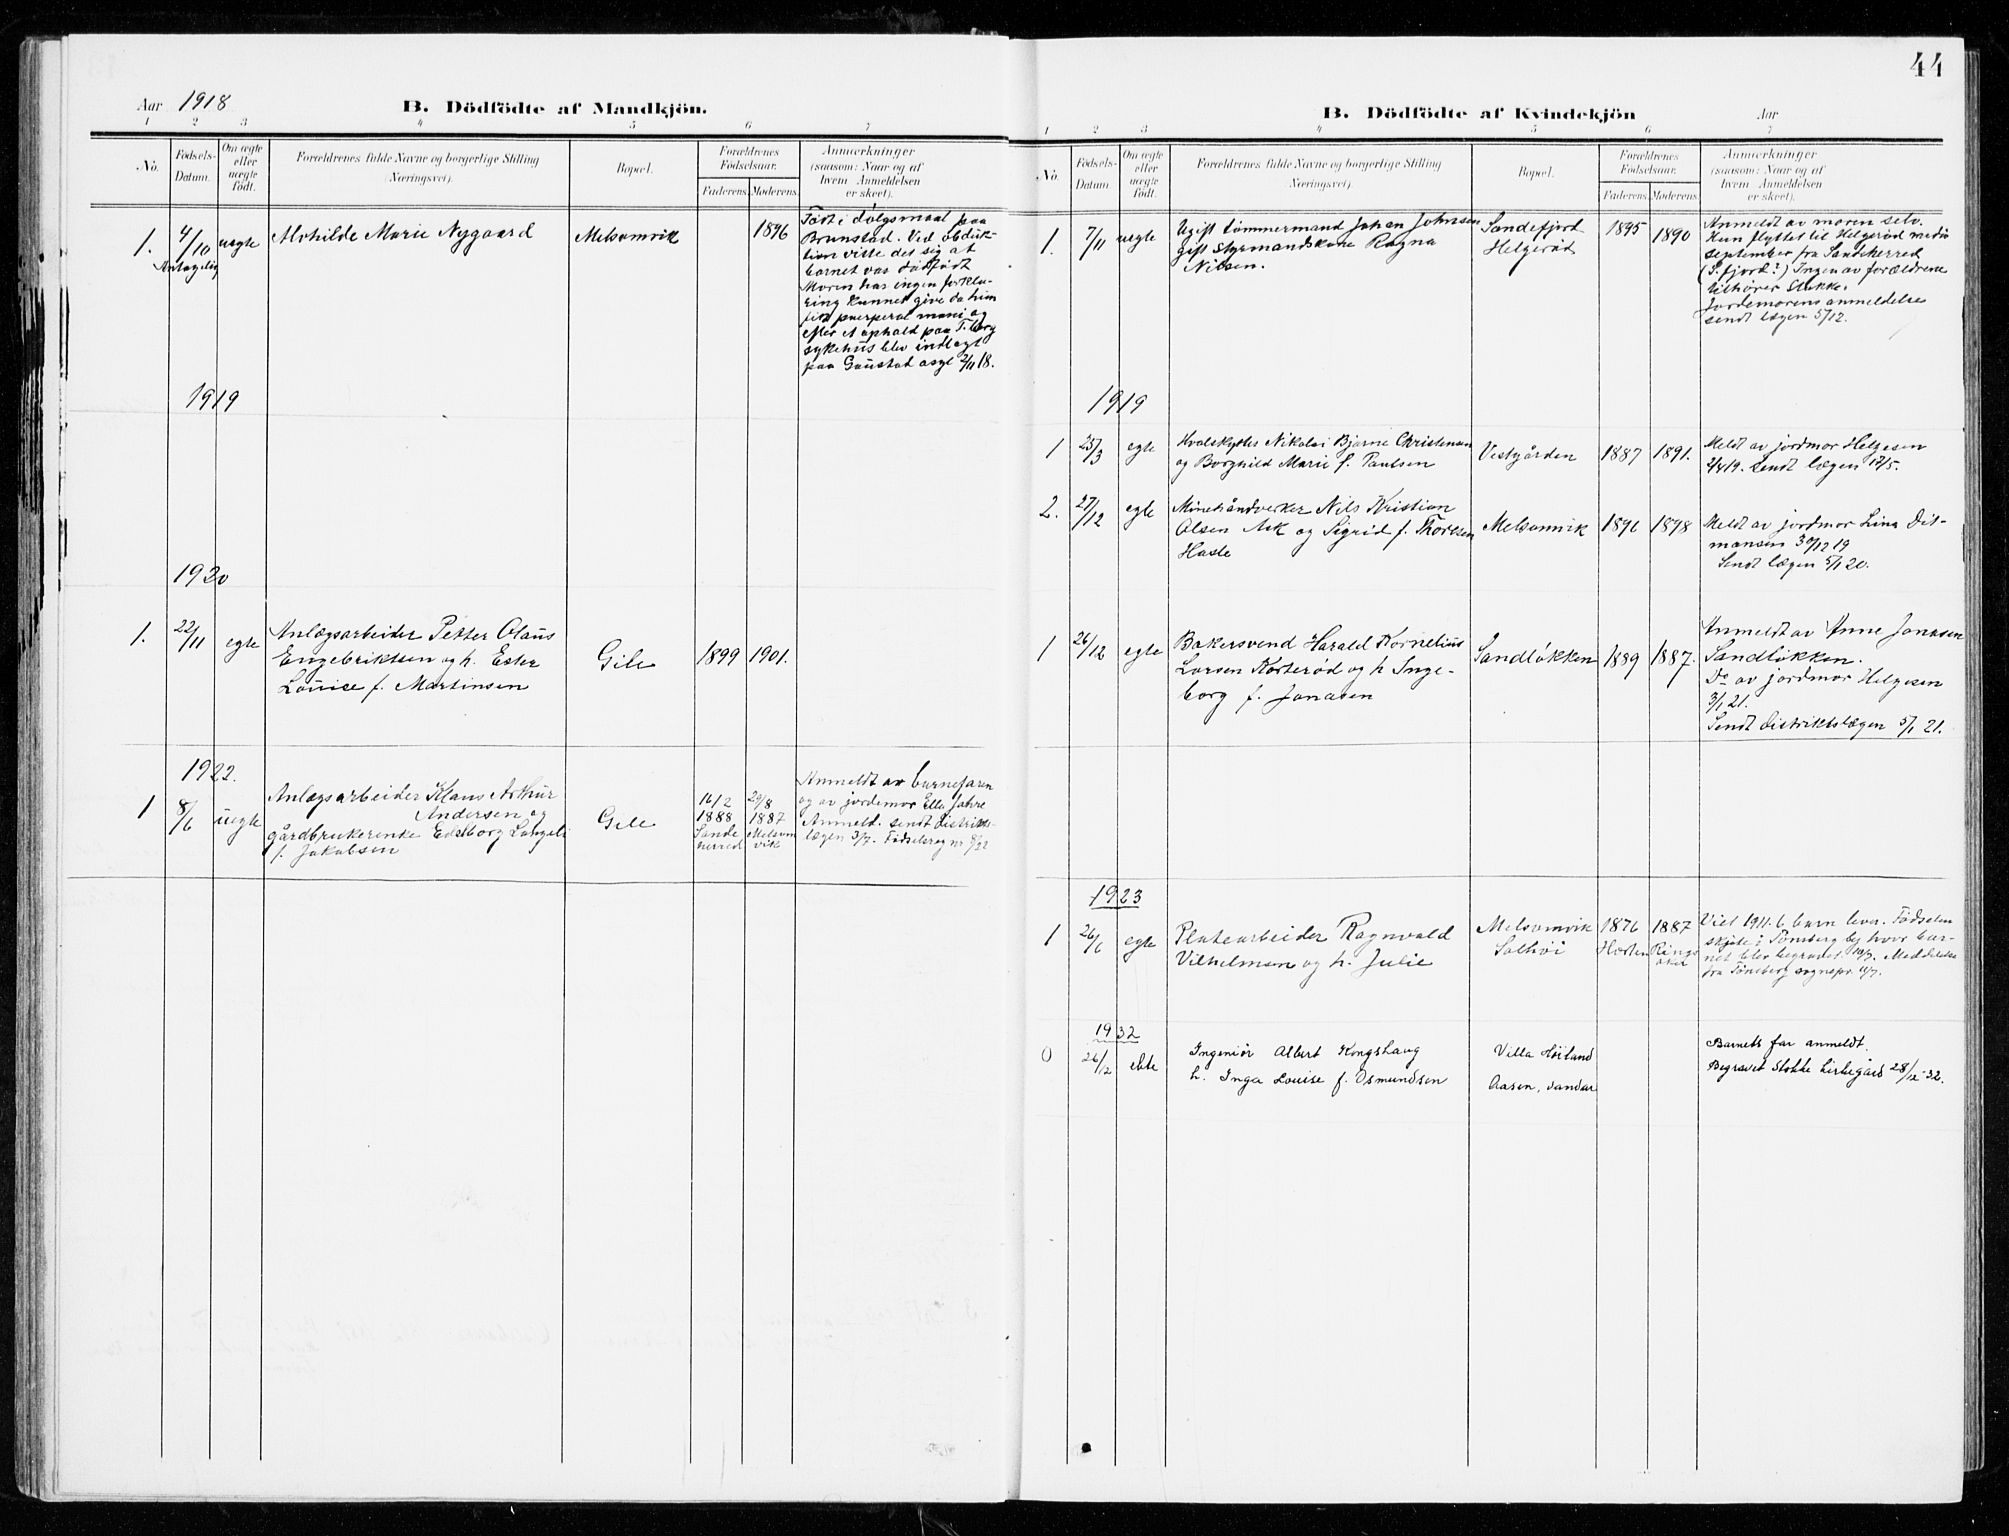 44
Aar 1918
B. Dödfödte af Mandkjön.
1 2 3 4 5 6 7
No.
Fødsels-
Datum.
Om ægte
eller
uægte
født.
Forældrenes fulde Navne og borgerlige Stilling
(Næringsvei).
Bopæl.
Forældrenes
Fødselsaar.
Faderens. Moderens.
Anmærkninger
(saasom: Naar og af
hvem Anmeldelsen
er skeet).
1. 4/10 uegte
Antagelig
Alvhilde Marie Nygaard
Melsomvik
1896
Født i dølgsmaal paa
Brunstad. Ved obduk-
tion viste det sig at
barnet var dødfødt
Moren har ingen forkla-
ring kunnet give da hun
fik puerperal mani og
efter et ophold paa T.berg
sykehus blev indlagt
paa Gaustad asyl 2/11 18.
1919
1920
1. 22/11 egte
Anlægsarbeider Petter Olaus
Engebriktsen og h. Ester
Louise f. Martinsen
Gile
1899 1901.
1922.
1 8/6 uegte
Anlægsarbeider Klaus Arthur
Andersen og
gårdbrukerenke Edelborg Langeli
f. Jakobsen
Gile
16/2
1888
Sande
herred
29/8
1887
Melsom
vik
Anmeldt av barnefaren
og av jordemor Ella Jahre
Anmeld. sendt distrikts-
lægen 3/7. Fødselsreg nr 8/22
B. Dödfödte af Kvindekjön
Aar
1 2 3 4 5 6 7
No.
Fødsels-
Datum
Om ægte
eller
uægte
født.
Forældrenes fulde Navne og borgerlige Stilling
Næringsvei).
Bopæl.
Forældrenes
Fødselsaar.
Faderens. Moderens.
Anmærkninger
(saasom: Naar og af
hvem Anmeldelsen
er skeet).
1. 7/11 uegte
Ugift tømmermand Johan Johnsen
Gift Styrmandskone Ragna
Nilsen.
Sandefjord
Helgerød
1895 1890
Anmeldt av moren selv.
Hun flyttet til Helgerød medio
september fra Sandeherred
(S.fjord?) Ingen av forældrene
tilhører Stokke.
Jordemorens anmeldelse
sendt lægen 5/12.
1919
1 25/3 egte
Hvalskytter Nikolai Bjarne Christensen
og Borghild Marie f. Paulsen
Vestgården
1887 1891.
Meldt av jordmor Helgesen
2/4 19. Sendt lægen 17/5.
2. 27/12 egte
Minehåndverker Nils Kristian
Olsen Ask og Sigrid f. Thoresen
Hasle
Melsomvik
1896 1898
Meldt av jordmor Lina Dit-
mansen 30/12 19
Sendt lægen 5/1 20.
1 26/12 egte
Bakersvend Harald Kornelius
Larsen Korterød og h Inge-
borg f. Jonasen
Sandløkken
1889 1887.
Anmeldt av Anne Jonasen
Sandløkken.
Do av jordmor Helgesen
3/1 21.
Sendt distriktslægen 5/1 21.
1923
1 26/6 egte
Platearbeider Ragnvald
Vilhelmsen og h. Julie
Melsomvik
Solhöi
1876
Horten
1887
Rings
aker
Viet 1911. 6 barn lever. Födselen
skjete i Tönsberg by hvor bar-
net blev begravet 10/7. Meddelelse
fra Tönsberg sognepr. 11/7.
1932
0 26/2 ekte
Ingeniør Albert Kongshaug
h. Inga Louise f. Osmundsen
Villa Höiland
Aasen, Vandar
Barnets far anmeldt.
Begravet Stokke kirkegård 28/12-32.